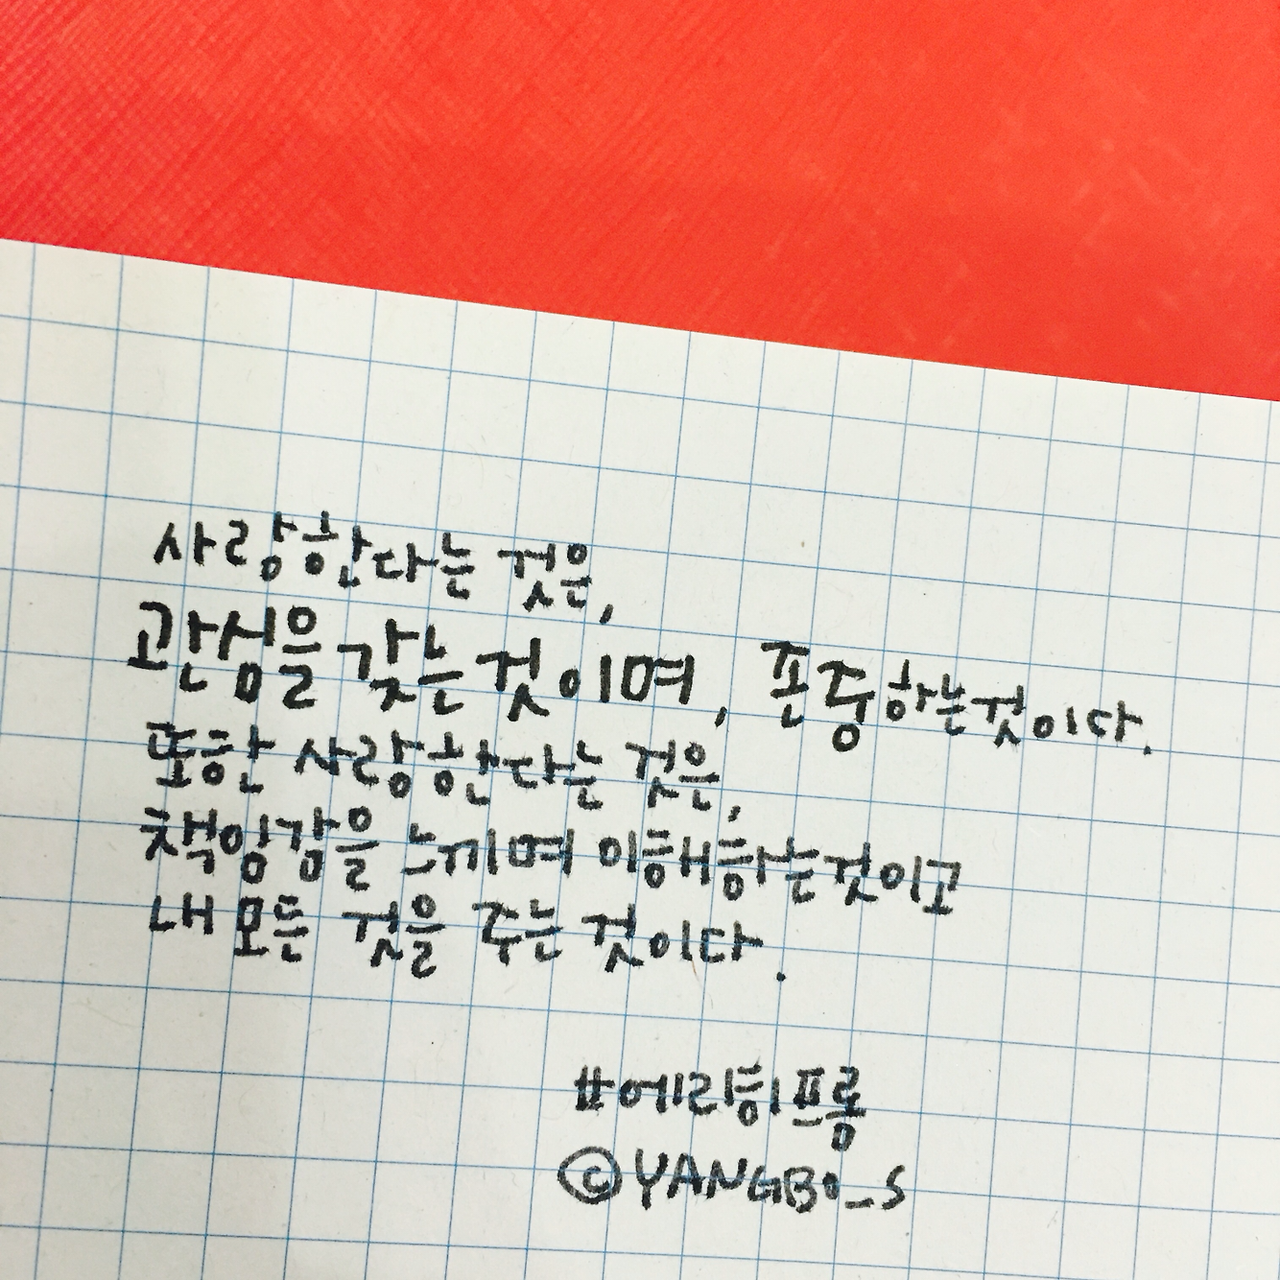 사랑한다는 것은,
관심을 갖는 것이며, 존중하는것이다.
또한 사랑한다는 것은,
책임감을 느끼며 이해하는것이고
내 모든 것을 주는 것이다.
#에리히프롬
©YANGBO_S